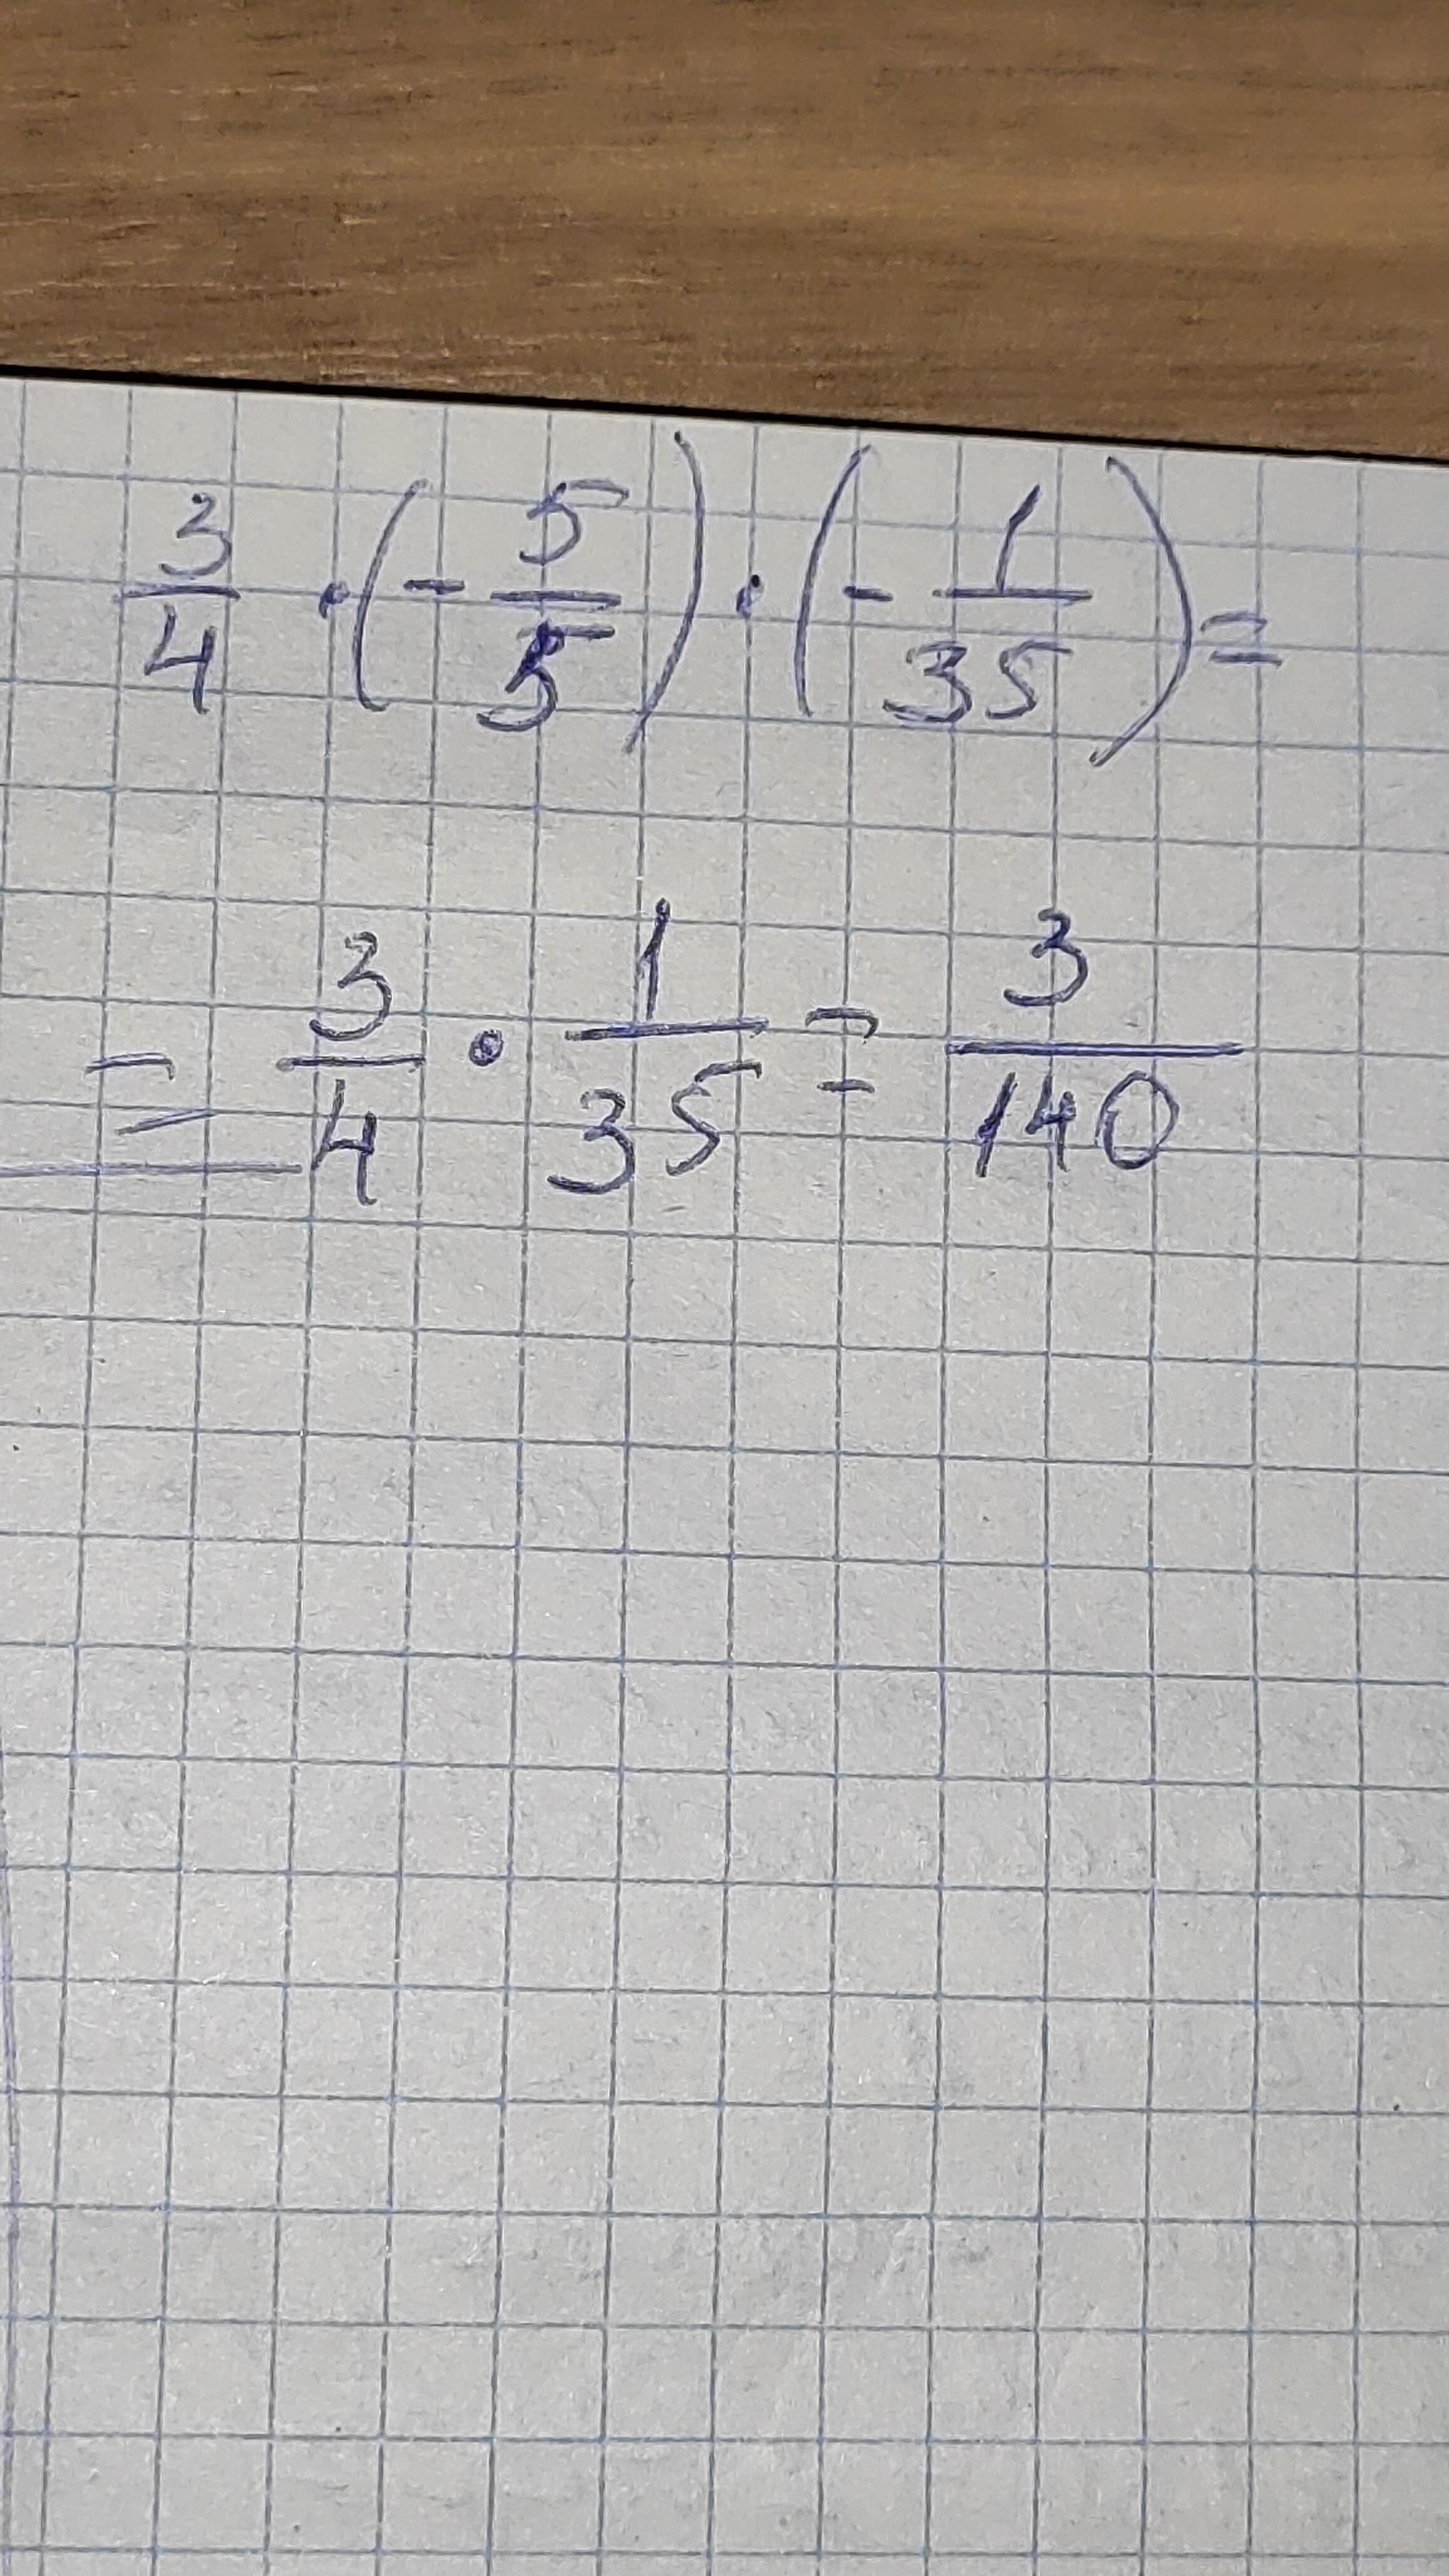 3/4 · (- 5/5) · (- 1/35) =
= 3/4 · 1/35 = 3/140